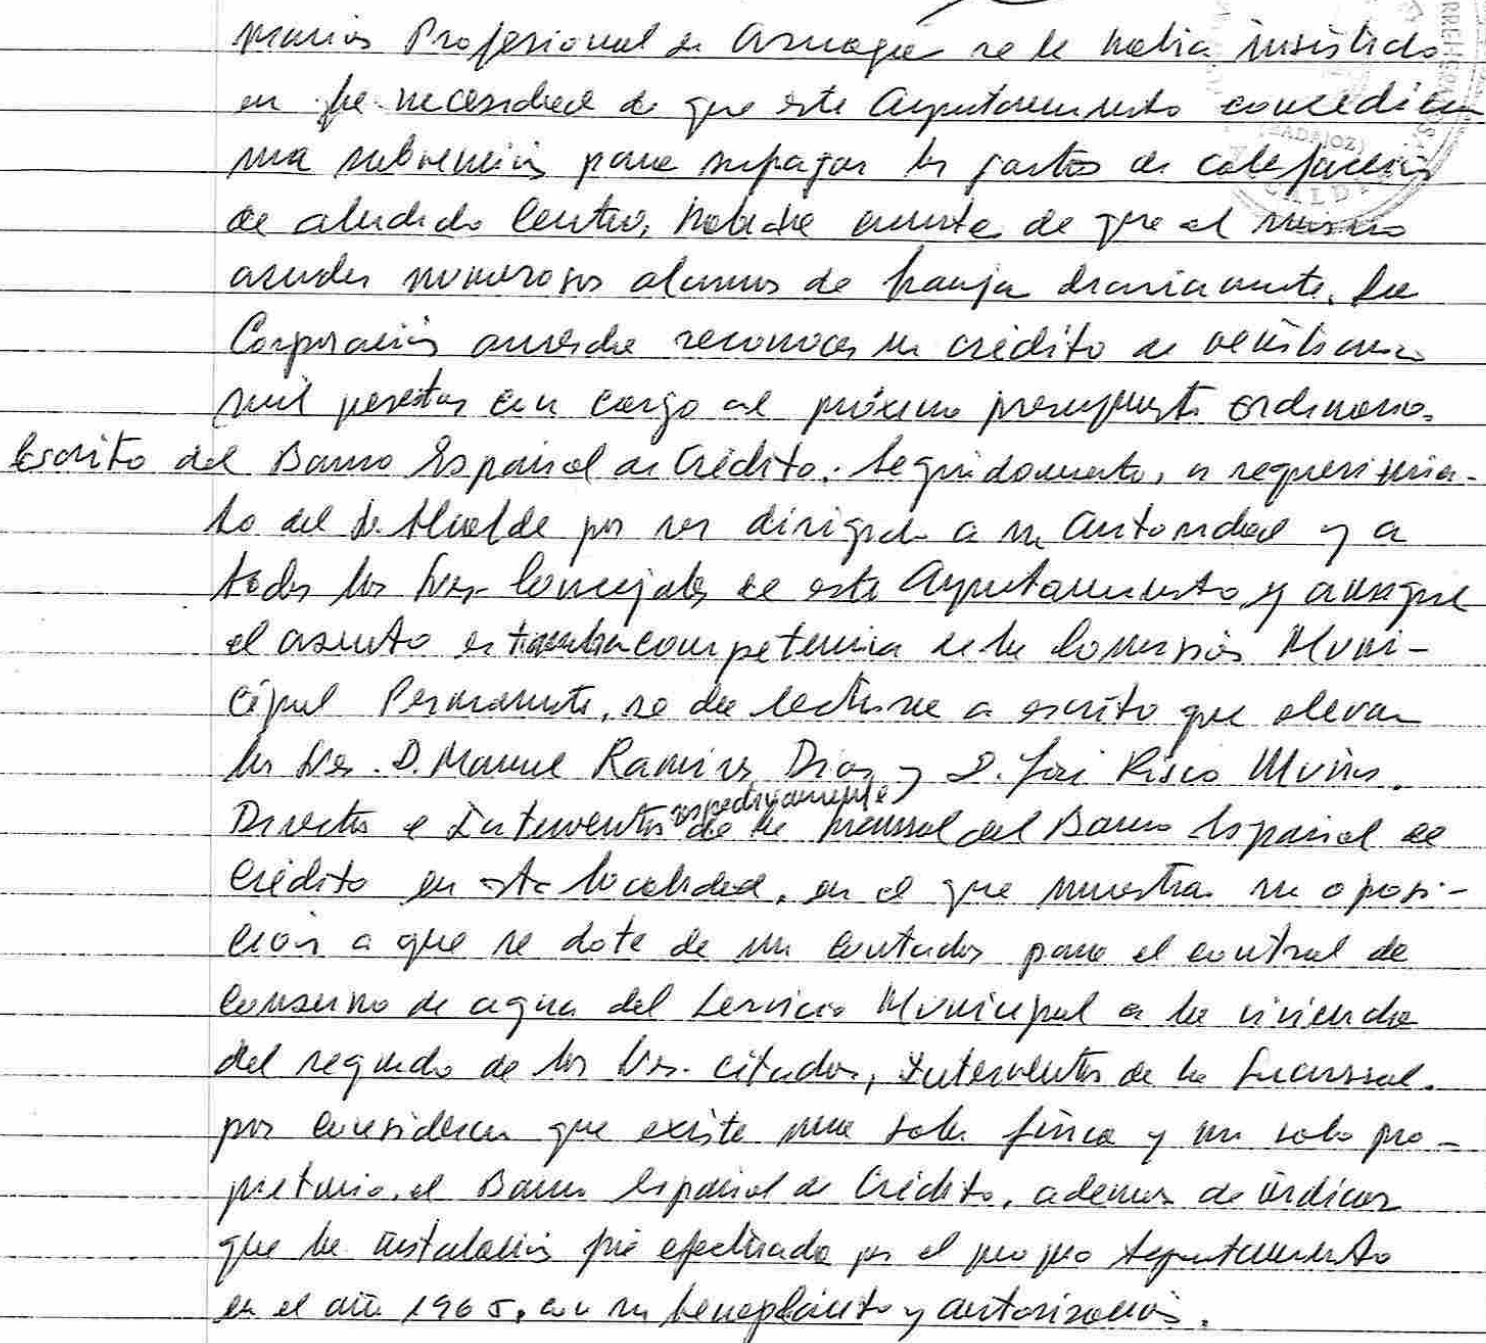 Profesional de Azuaga se le había insistido
en la necesidad de que este Ayuntamiento concediera
una subvención para sufragar los gastos de calefacción
de aludido Centro, habida cuenta de que al mismo
acuden numerosos alumnos de Granja diariamente. La
Corporación acuerda reconocer un crédito de veinticinco
mil pesetas con cargo al próximo presupuesto ordinario.
Escrito del Banco Español de Crédito.- Seguidamente, a requerimien-
to del Sr. Alcalde por ser dirigido a su autoridad y a
todos los Sres. Concejales de este Ayuntamiento, y aunque
el asunto es competencia de la Comisión Muni-
cipal Permanente, se da lectura a escrito que elevan
los Sres. D. Manuel Ramírez Díaz y D. José Risco Muñoz.
respectivamente
Director e Interventor de la sucursal del Banco Español de
Crédito en esta localidad, en el que muestran su oposi-
ción a que se dote de un contador para el control de
consumo de agua del Servicio Municipal a la vivienda
del segundo de los Sres. citados, Interventor de la Sucursal.
por considerar que existe una sola finca y un solo pro-
pietario, el Banco Español de Crédito, ademas de indicar
que la instalación fué efectuada por el propio Ayuntamiento
en el año 1965, con su beneplácito y autorización.
BADAJOZ